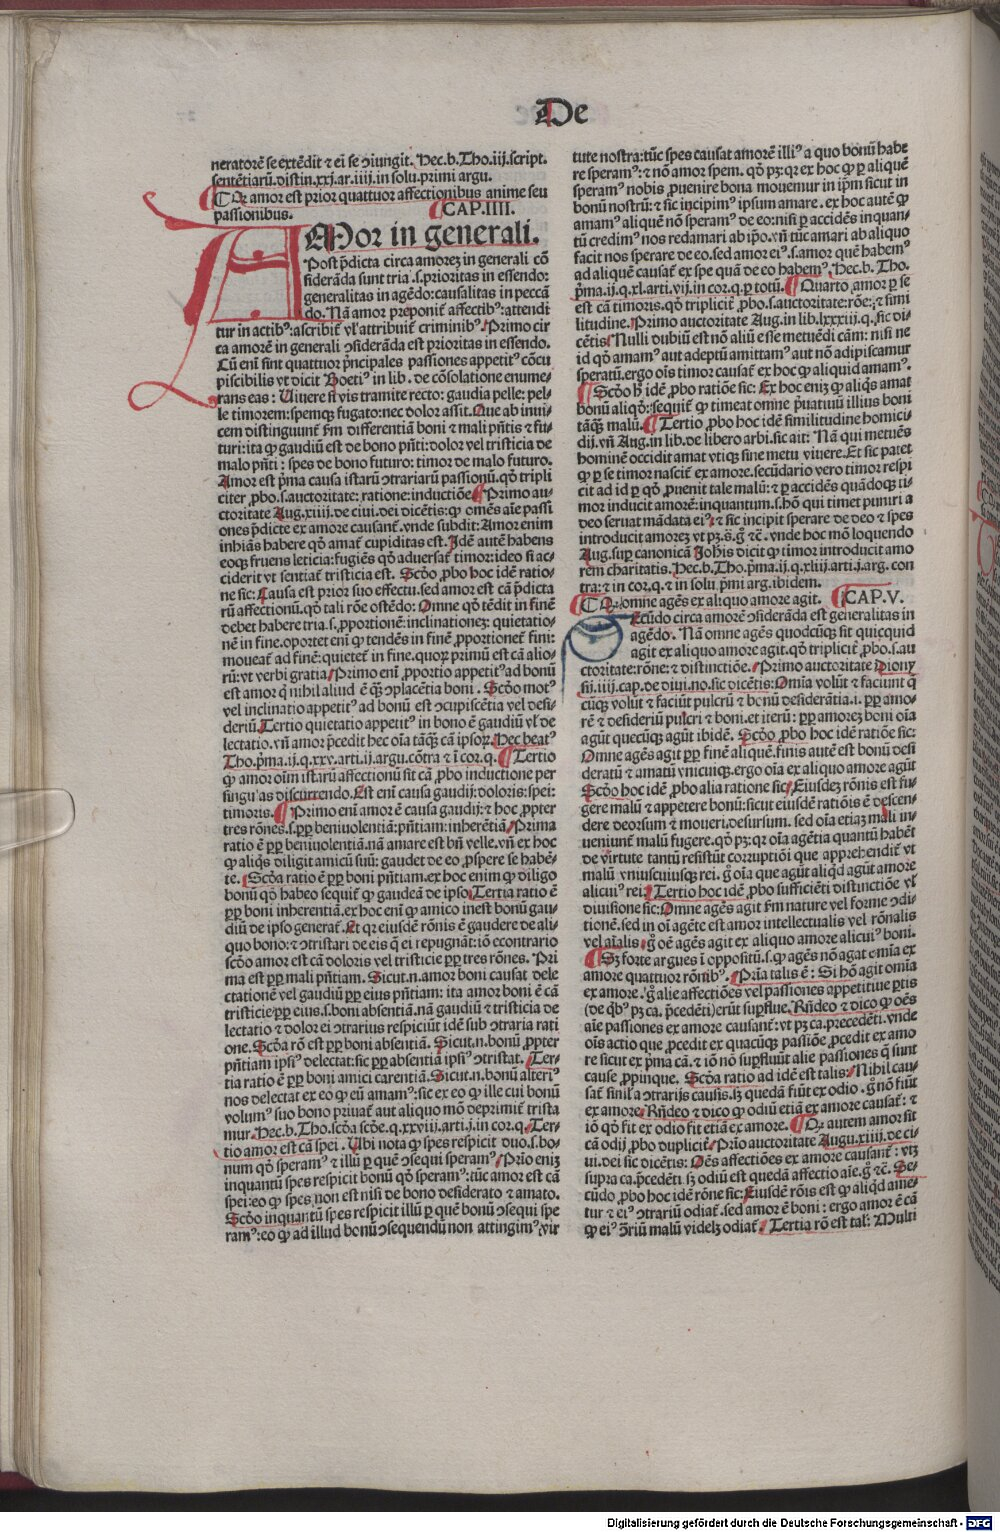 De
neratorē se extēdit ⁊ ei se ɔiungit. Hec.b.Tho.iij.script.
sentētiarū.distin.xxj.ar.iiij.in solu.primi argu.
¶ Qꝫ amor est prior quattuor affectionibus anime seu
passionibus. ¶ CAP.IIII.
AMor in generali.
Post p̄dicta circa amoreꝫ in generali cō
siderāda sunt tria .s.prioritas in essendo:
generalitas in agēdo:causalitas in peccā
do. Nā amor preponit᷑ affectibꝰ:attendit᷑
tur in actibꝰ:ascribit᷑ vl̓ attribuit᷑ criminibꝰ. Primo cir
ca amorē in generali ɔsiderāda est prioritas in essendo.
Cū eni sint quattuor p̄ncipales passiones appetitꝰ cōcu
piscibilis vt dicit Boetiꝰ in lib. de cōsolatione enume-
rans eas: Uiuere si vis tramite recto: gaudia pelle: pel-
le timorem: spemqꝫ fugato: nec dolor assit. Que ab inui-
cem distinguunt᷑ ẜm differentiā boni ⁊ mali p̄ntis ⁊ fu-
turi: ita ꝙ gaudiū est de bono p̄nti: dolor vel tristicia de
malo p̄nti: spes de bono futuro: timor de malo futuro.
Amor est p̄ma causa istarū ɔtrariarū passionū. qđ tripli
citer ꝓbo .s.auctoritate: ratione: inductiōe. ¶ Primo au-
ctoritate Aug.xiiij.de ciui.dei dicētis: ꝙ omēs aīe passi
ones p̄dicte ex amore causant᷑. vnde subdit: Amor enim
inhiās habere qđ amat᷑ cupiditas est. Idē autē habens
eoqꝫ fruens leticia: fugiēs qđ aduersat᷑ timor: ideo si ac-
ciderit vt sentiat᷑ tristicia est. Scđo ꝓbo hoc idē ratio-
ne sic: Causa est prior suo effectu. sed amor est cā p̄dicta
rū affectionū. qđ tali rōne ostēdo: Omne qđ tēdit in finē
debet habere tria .s.ꝓportionē: inclinationeꝫ: quietatio-
nē in fine. oportet eni ꝙ tendēs in finē ꝓportionet᷑ fini:
moueat᷑ ad finē: quietet᷑ in fine. quoꝝ primū est cā alio-
rū: vt verbi gratia. Primo eni ꝓportio appetitꝰ ad bonū
est amor q̇ nihil aliud ē q̄ꝫ ɔplacētia boni. Scđo motꝰ
vel inclinatio appetitꝰ ad bonū est ɔcupiscētia vel desi-
deriū. Tertio quietatio appetitꝰ in bono ē gaudiū vl̓ de
lectatio. vn̄ amor p̄cedit hec oīa tāq̄ꝫ cā ipsoꝝ. Hec beatꝰ
Tho.p̄ma.ij.q.xxv.arti.ij.argu.cōtra ⁊ ī cor.q. ¶ Tertio
ꝙ amor oīm istarū affectionū sit cā ꝓbo inductione per
singulas discurrendo. Est eni causa gaudij: doloris: spei:
timoris. ¶ Primo eni amor ē causa gaudij: ⁊ hoc ꝓpter
tres rōnes .s.ꝓp̄ beniuolentiā: p̄ntiam: inherētiā. Prima
ratio ē ꝓp̄ beniuolentiā. nā amare est bn̄ velle. vn̄ ex hoc
ꝙ aliq̇s diligit amicū suū: gaudet de eo ꝓspere se habē-
te. Scđa ratio ē ꝓp̄ boni p̄ntiam. ex hoc enim ꝙ diligo
bonū qđ habeo sequit᷑ ꝙ gaudeā de ipso. Tertia ratio ē
ꝓp̄ boni inherentiā. ex hoc eni ꝙ amico inest bonū gau-
diū de ipso generat᷑. Et qꝛ eiusdē rōnis ē gaudere de ali-
quo bono: ⁊ ɔtristari de eis q̄ ei repugnāt: iō econtrario
scđo amor est cā doloris vel tristicie ꝓp̄ tres rōnes. Pri
ma est ꝓp̄ mali p̄ntiam. Sicut.n.amor boni causat dele
ctationē vel gaudiū ꝓp̄ eius p̄ntiam: ita amor boni ē cā
tristicie ꝓp̄ eius .s.boni absentiā. nā gaudiū ⁊ tristicia de
lectatio ⁊ dolor ei ɔtrarius respiciūt idē sub ɔtraria rati
one. Scđa rō est ꝓp̄ boni absentiā. Sicut.n.bonū ꝓpter
p̄ntiam ipsiꝰ delectat: sic ꝓp̄ absentiā ipsiꝰ ɔtristat. Ter-
tia ratio ē ꝓp̄ boni amici carentiā. Sicut.n.bonū alteriꝰ
nos delectat ex eo ꝙ eū amamꝰ: sic ex eo ꝙ ille cui bonū
volumꝰ suo bono priuat᷑ aut aliquo mō deprimit᷑ trista
mur. Hec.b.Tho.scđa scđe.q.xxviij.arti.j.in cor.q. Ter-
tio amor est cā spei. Ubi nota ꝙ spes respicit duo .s.bo-
num qđ speramꝰ ⁊ illū ꝑ quē ɔsequi speramꝰ. Prīo eniꝫ
inquantū spes respicit bonū qđ speramꝰ: tūc amor est cā
spei: eo ꝙ spes non est nisi de bono desiderato ⁊ amato.
Scđo inquantū spes respicit illū ꝑ quē bonū ɔsequi spe
ramꝰ: eo ꝙ ad illud bonū ɔsequendū non attingimꝰ vir
tute nostra: tūc spes causat amorē illiꝰ a quo bonū habe
re speramꝰ: ⁊ nō amor spem. qđ pꝫ: qꝛ ex hoc ꝙ ꝑ aliquē
speramꝰ nobis ꝓuenire bona mouemur in ip̄m sicut in
bonū nostrū: ⁊ sic incipimꝰ ipsum amare. ex hoc autē ꝙ
amamꝰ aliquē nō speramꝰ de eo: nisi ꝑ accidēs inquan-
tū credimꝰ nos redamari ab ip̄o. vn̄ tūc amari ab aliquo
facit nos sperare de eo. sed amor eiꝰ .s.amor quē habemꝰ
ad aliquē causat᷑ ex spe quā de eo habemꝰ. Hec.b.Tho.
p̄ma.ij.q.xl.arti.vij.in cor.q.ꝑ totū. ¶ Quarto amor ꝑ se
est cā timoris. qđ tripliciter ꝓbo .s.auctoritate: rōne: ⁊ simi
litudine. Primo auctoritate Aug.in lib.lxxxiij.q.sic di-
cētis: Nulli dubiū est nō aliū esse metuēdi cām: nisi ne
id qđ amamꝰ aut adeptū amittamꝰ aut nō adipiscamur
speratū. ergo oīs timor causat᷑ ex hoc ꝙ aliquid amamꝰ.
¶ Scđo h̓ idē ꝓbo ratiōe sic: Ex hoc eniꝫ ꝙ aliq̇s amat
bonū aliqđ: sequit᷑ ꝙ timeat omne p̄uatiuū illius boni
tāq̄ꝫ malū. ¶ Tertio ꝓbo hoc idē similitudine homici-
dij. vn̄ Aug.in lib.de libero arbi.sic ait: Nā qui metuēs
hominē occidit amat vtiqꝫ sine metu viuere. Et sic patet
ꝙ ꝑ se timor nascit᷑ ex amore. secūdario vero timor respi
cit ad id ꝑ qđ ꝓuenit tale malū: ⁊ ꝑ accidēs quādoqꝫ ti-
mor inducit amorē: inquantum .s.hō qui timet puniri a
deo seruat mādata eiꝰ: ⁊ sic incipit sperare de deo ⁊ spes
introducit amorez vt pꝫ.s.g̊ ⁊c̄. vnde hoc mō loquendo
Aug.suꝑ canonicā Joh̄is dicit ꝙ timor introducit amo
rem charitatis. Hec.b.Tho.p̄ma.ij.q.xliij.arti.j.arg. con
tra: ⁊ in cor.q.⁊ in solu.p̄mi arg.ibidem.
¶ Qꝫ omne agēs ex aliquo amore agit. ¶ CAP.V.
Secūdo circa amorē ɔsiderāda est generalitas in
agēdo. Nā omne agēs quodcūqꝫ sit quicquid
agit ex aliquo amore agit. qđ tripliciter ꝓbo .s.au
ctoritate: rōne: ⁊ distinctiōe. Primo auctoritate Diony
sij.iiij.cap.de diui.no.sic dicētis: Omīa volūt ⁊ faciunt q̄
cūqꝫ volūt ⁊ faciūt pulcrū ⁊ bonū desiderātia .i.ꝓp̄ amo-
rē ⁊ desideriū pulcri ⁊ boni. et iterū: ꝓp̄ amorez boni oīa
agūt quecūqꝫ agūt ibidē. Scđo ꝓbo hoc idē ratiōe sic:
Omne agēs agit ꝓp̄ finē aliquē. finis autē est bonū desi
deratū ⁊ amatū vnicuiqꝫ. ergo oīa ex aliquo amore agūt
Scđo hoc idē ꝓbo alia ratione sic: Eiusdeꝫ rōnis est fu-
gere malū ⁊ appetere bonū: sicut eiusdē ratiōis ē descen-
dere deorsum ⁊ moueri desursum. sed oīa etiaꝫ mali in-
ueniunt malū fugere. qđ pꝫ: qꝛ oīa agētia quantū habēt
de virtute tantū resistūt corruptiōi que apprehendit᷑ vt
malū vniuscuiusqꝫ rei. g̊ oīa que agūt aliqđ agūt amore
alicuiꝰ rei. Tertio hoc idē ꝓbo sufficiēti distinctiōe vl̓
diuisione sic: Omne agēs agit ẜm nature vel forme ɔdi-
tionē. sed in oī agēte est amor intellectualis vel rōnalis
vel aīalis. g̊ oē agēs agit ex aliquo amore alicuiꝰ boni.
¶ Sꝫ forte argues ī oppositū .s.ꝙ agēs nō agat omīa ex
amore quattuor rōnibꝰ. Prīa talis ē: Si hō agit omīa
ex amore. g̊ alie affectiōes vel passiones appetitiue ꝑtis
(de qbꝰ pꝫ ca. p̄cedēti) erūt suꝑflue. Rn̄deo ⁊ dico ꝙ oēs
aīe passiones ex amore causant᷑: vt pꝫ ca.precedēti. vnde
oīs actio que ꝓcedit ex quacūqꝫ passiōe ꝓcedit ex amo
re sicut ex p̄ma cā. ⁊ iō nō suꝑfluūt alie passiones q̄ sunt
cause ꝓpinque. Scđa ratio ad idē est talis: Nihil cau-
sat᷑ simul a ɔtrarijs causis. sꝫ quedā fiūt ex odio. g̊ nō fiūt
ex amore. Rn̄deo ⁊ dico ꝙ odiū etiā ex amore causat᷑: ⁊
iō qđ fit ex odio fit etiā ex amore. ¶ Qꝫ autem amor sit
cā odij ꝓbo dupliciter. Prīo auctoritate Augu.xiiij.de ci-
ui.dei sic dicētis: Oēs affectiōes ex amore causant᷑: vtꝫ
supra ca.p̄cedēti. sꝫ odiū est quedā affectio aīe. g̊ ⁊c̄. Se-
cūdo ꝓbo hoc idē rōne sic: Eiusdē rōis est ꝙ aliqđ ame-
tur ⁊ eiꝰ ɔtrariū odiat᷑. sed amor ē boni: ergo amor ē cā
ꝙ eiꝰ ɔriū malū videlꝫ odiat᷑. Tertia rō est tal̓: Multi
Digitalisierung gefördert durch die Deutsche Forschungsgemeinschaft - DFG